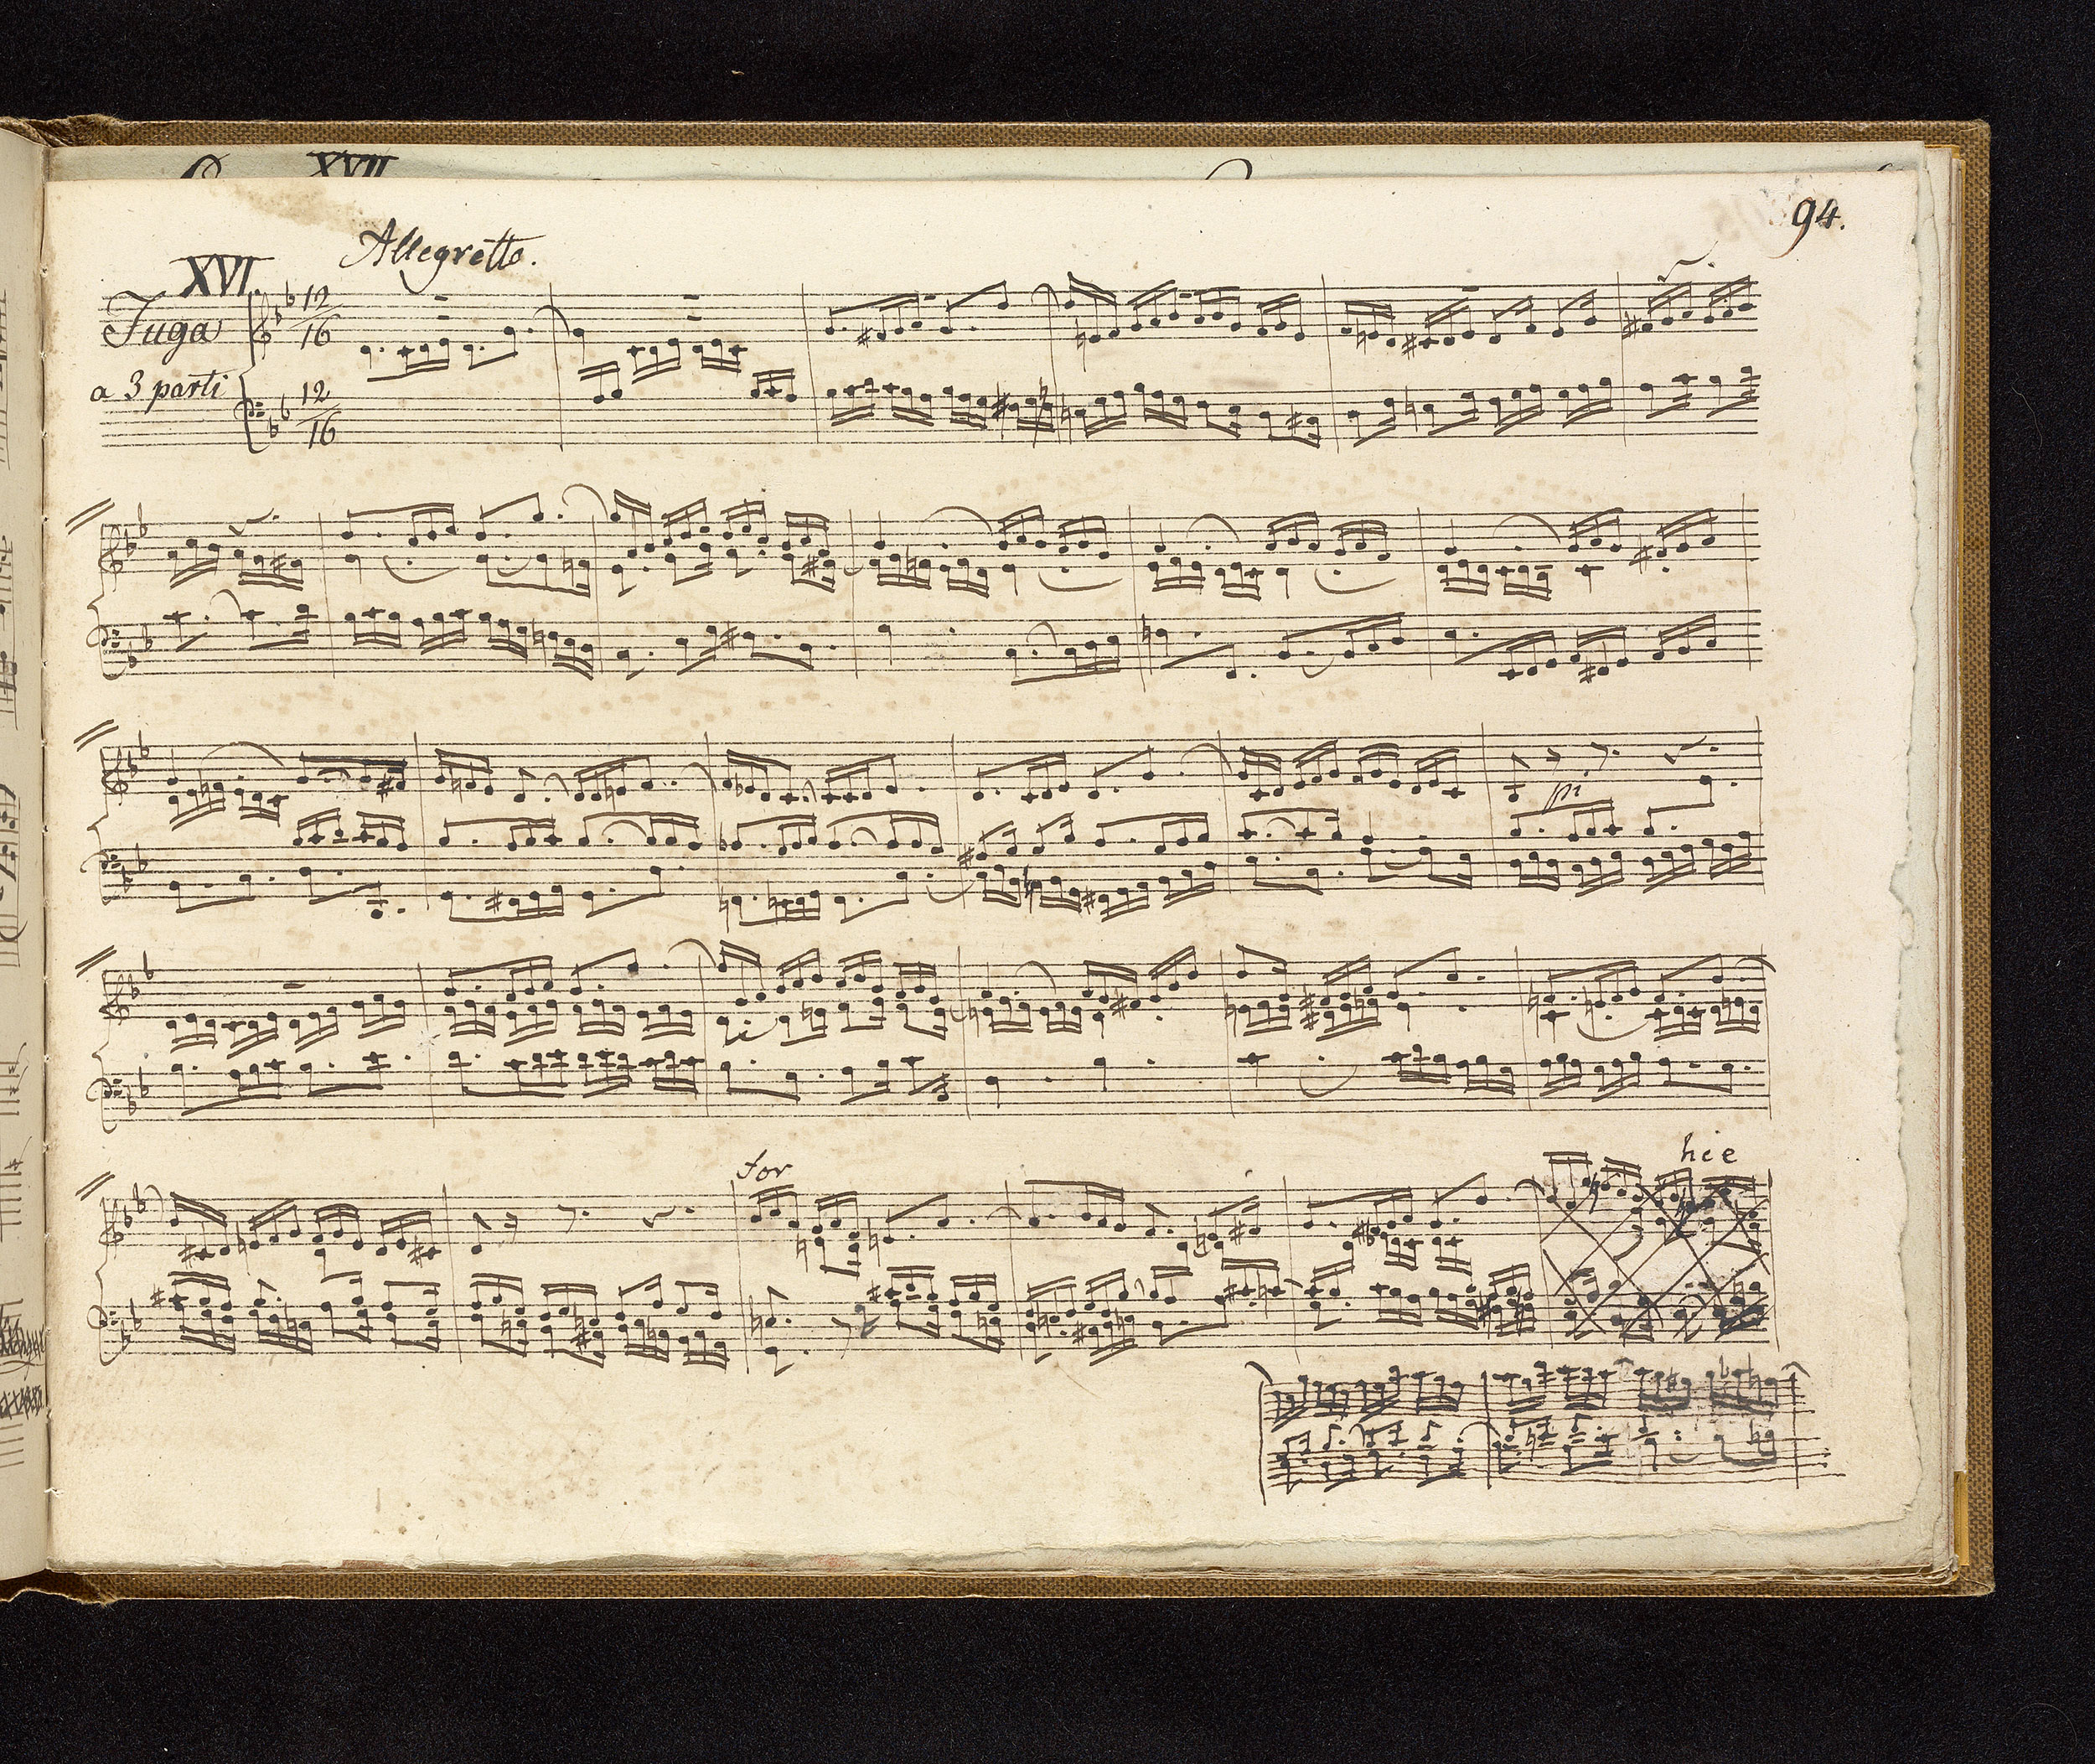 XVII
94.
Allegretto.
XVI.
Fuga
a 3 parti
12
16
12
16
pi
for
hie